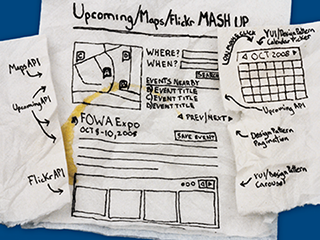 Upcoming/Maps/Flickr MASH UP
Maps API
Upcoming API
Flickr API
WHERE?
WHEN?
SEARCH
EVENTS NEARBY
A) EVENT TITLE
B) EVENT TITLE
C) EVENT TITLE
◄ PREV/NEXT ►
FOWA Expo
OCT 8-10, 2008
SAVE EVENT
YUI/Design Pattern
Calendar Picker
◄ OCT 2008 ►
Upcoming API
Design Pattern
Pagination
YUI/Design Pattern
Carousel